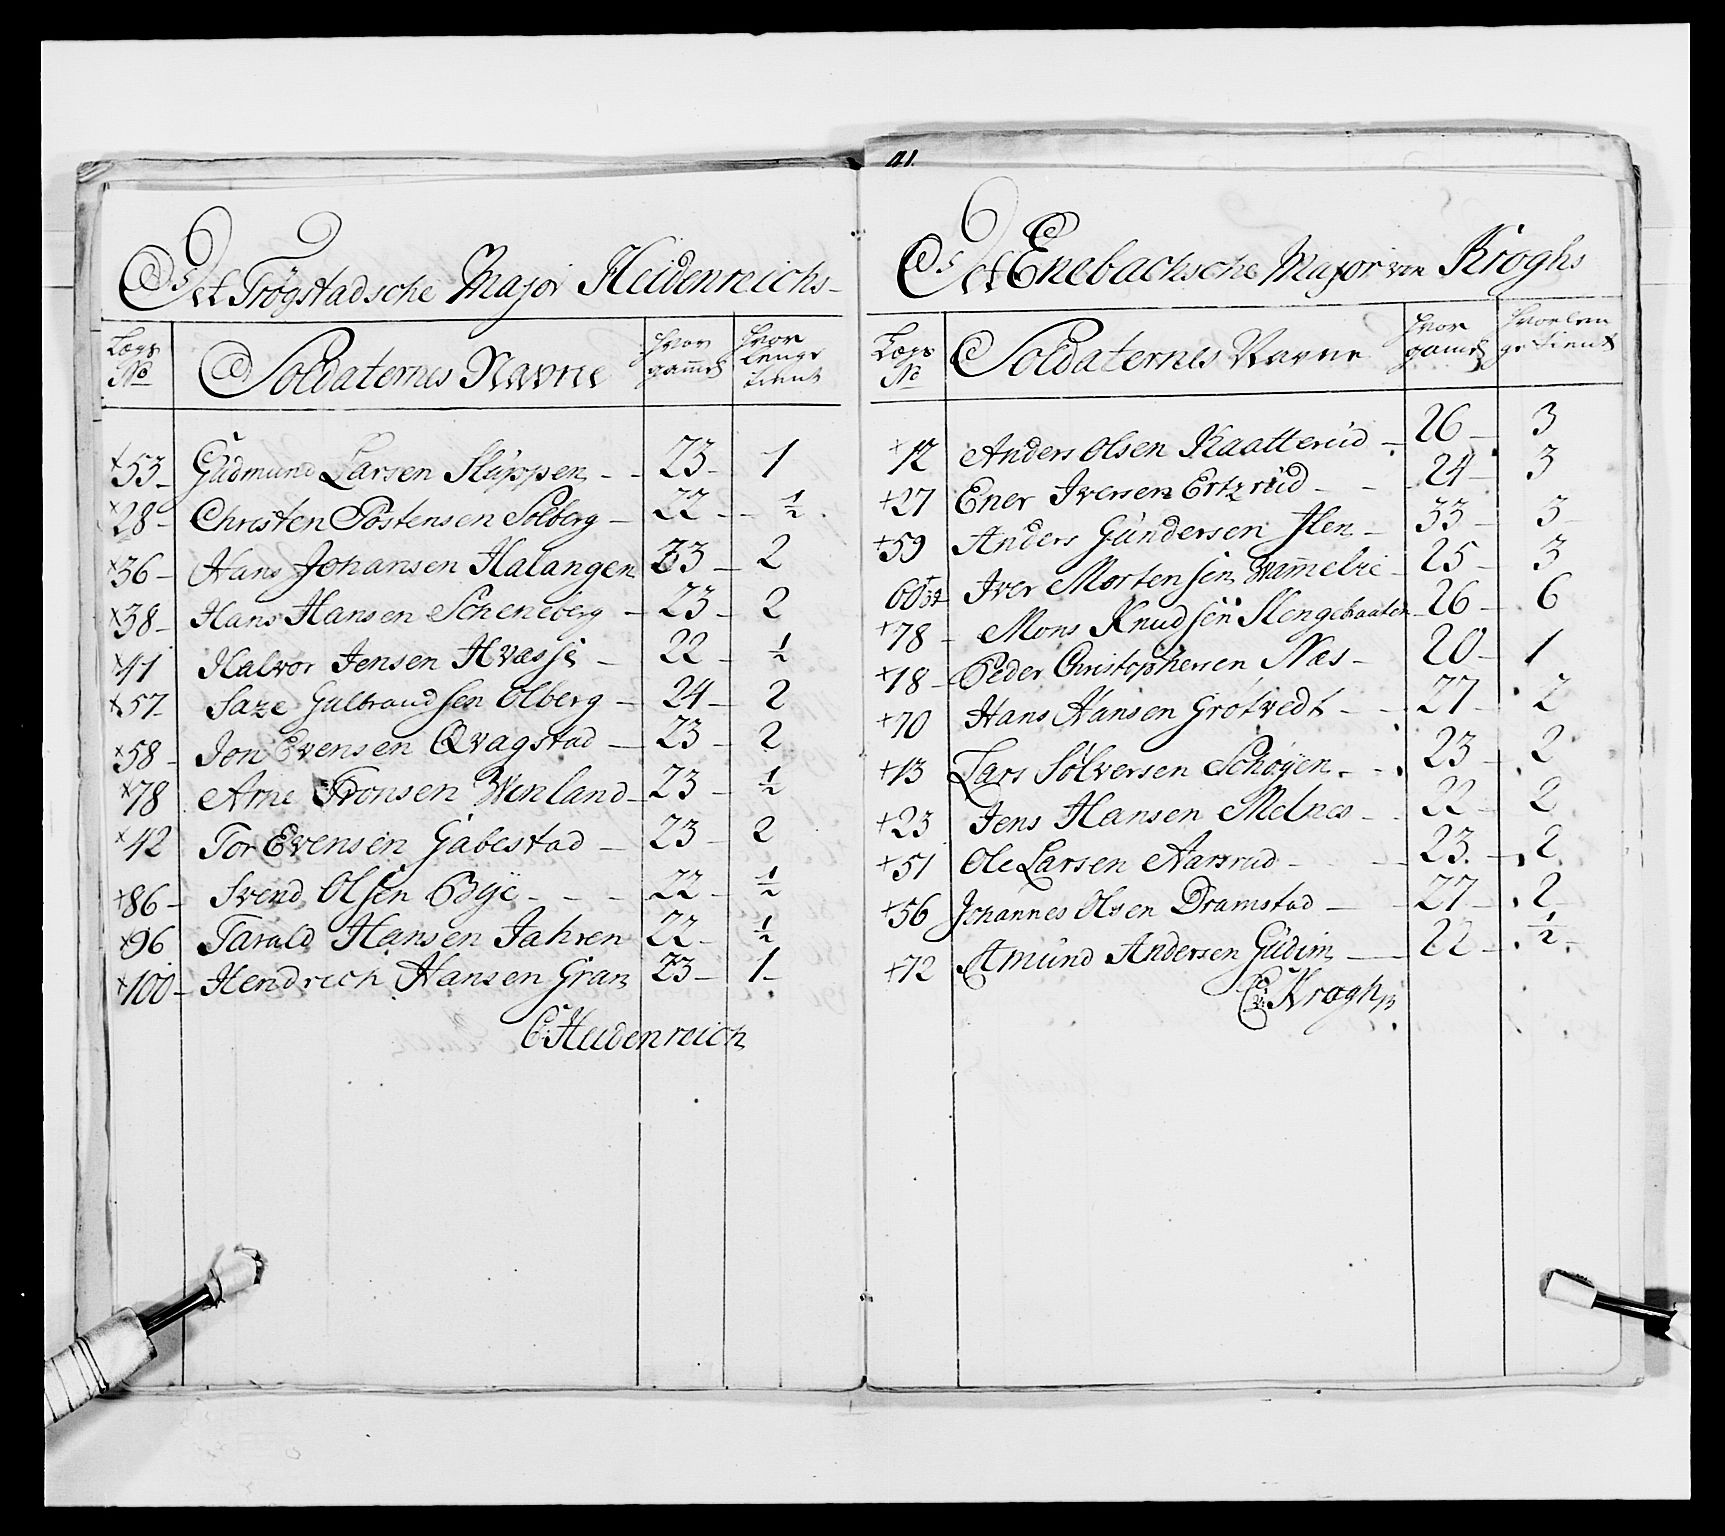 Det Trögstadsche Major Heidenreichs
Lægs No
Soldaternes Navne
Hvor gammel
Hvor lenge tient
+53 Gudmund Larsen Sluppen 23 1
+28 Christen Postensen Solberg 22 ½
+36 Hans Johansen Halangen 23 2
+38 Hans Hansen Scheneberg 23 2
+41 Halvor Jensen Hvasse 22 ½
+57 Gulbrandsen Olberg 24 2
+58 Jon Evensen Qvagstad 23 2
+78 Arne Tronsen Wenland 23 ½
+42 Tor Evensen Gabestad 23 2
+86 Svend Olsen Bye 22 ½
+96 Tarald Hansen Jahren 22 ½
+100 Hendrich Hansen Gran 23 1
C: Heidenreich
41.
Det Enebachsche Major von Kroghs
Lægs No
Soldaternes Navne
Hvor gammel
Hvorlenge tient
+12 Anders Olsen Kaatterud 26 3
+27 Ener Iversen Ertzrud 24 3
+59 Anders Gundersen Ilen 33 3
60 Iver Mortensen 25 3
+78 Mons Knudsen 26 6
+18 Peder Christophersen Næs 20 1
+70 Hans Hansen Grotvedt 27 2
+13 Lars Sölversen Schöyen 23 2
+23 Jens Hansen Melnes 22 2
+51 Ole Larsen Aarsrud 23 2
+56 Johannes Olsen Dramstad 27 2
+72 Amund Andersen Gudim 22 ½
C: v: Krogh